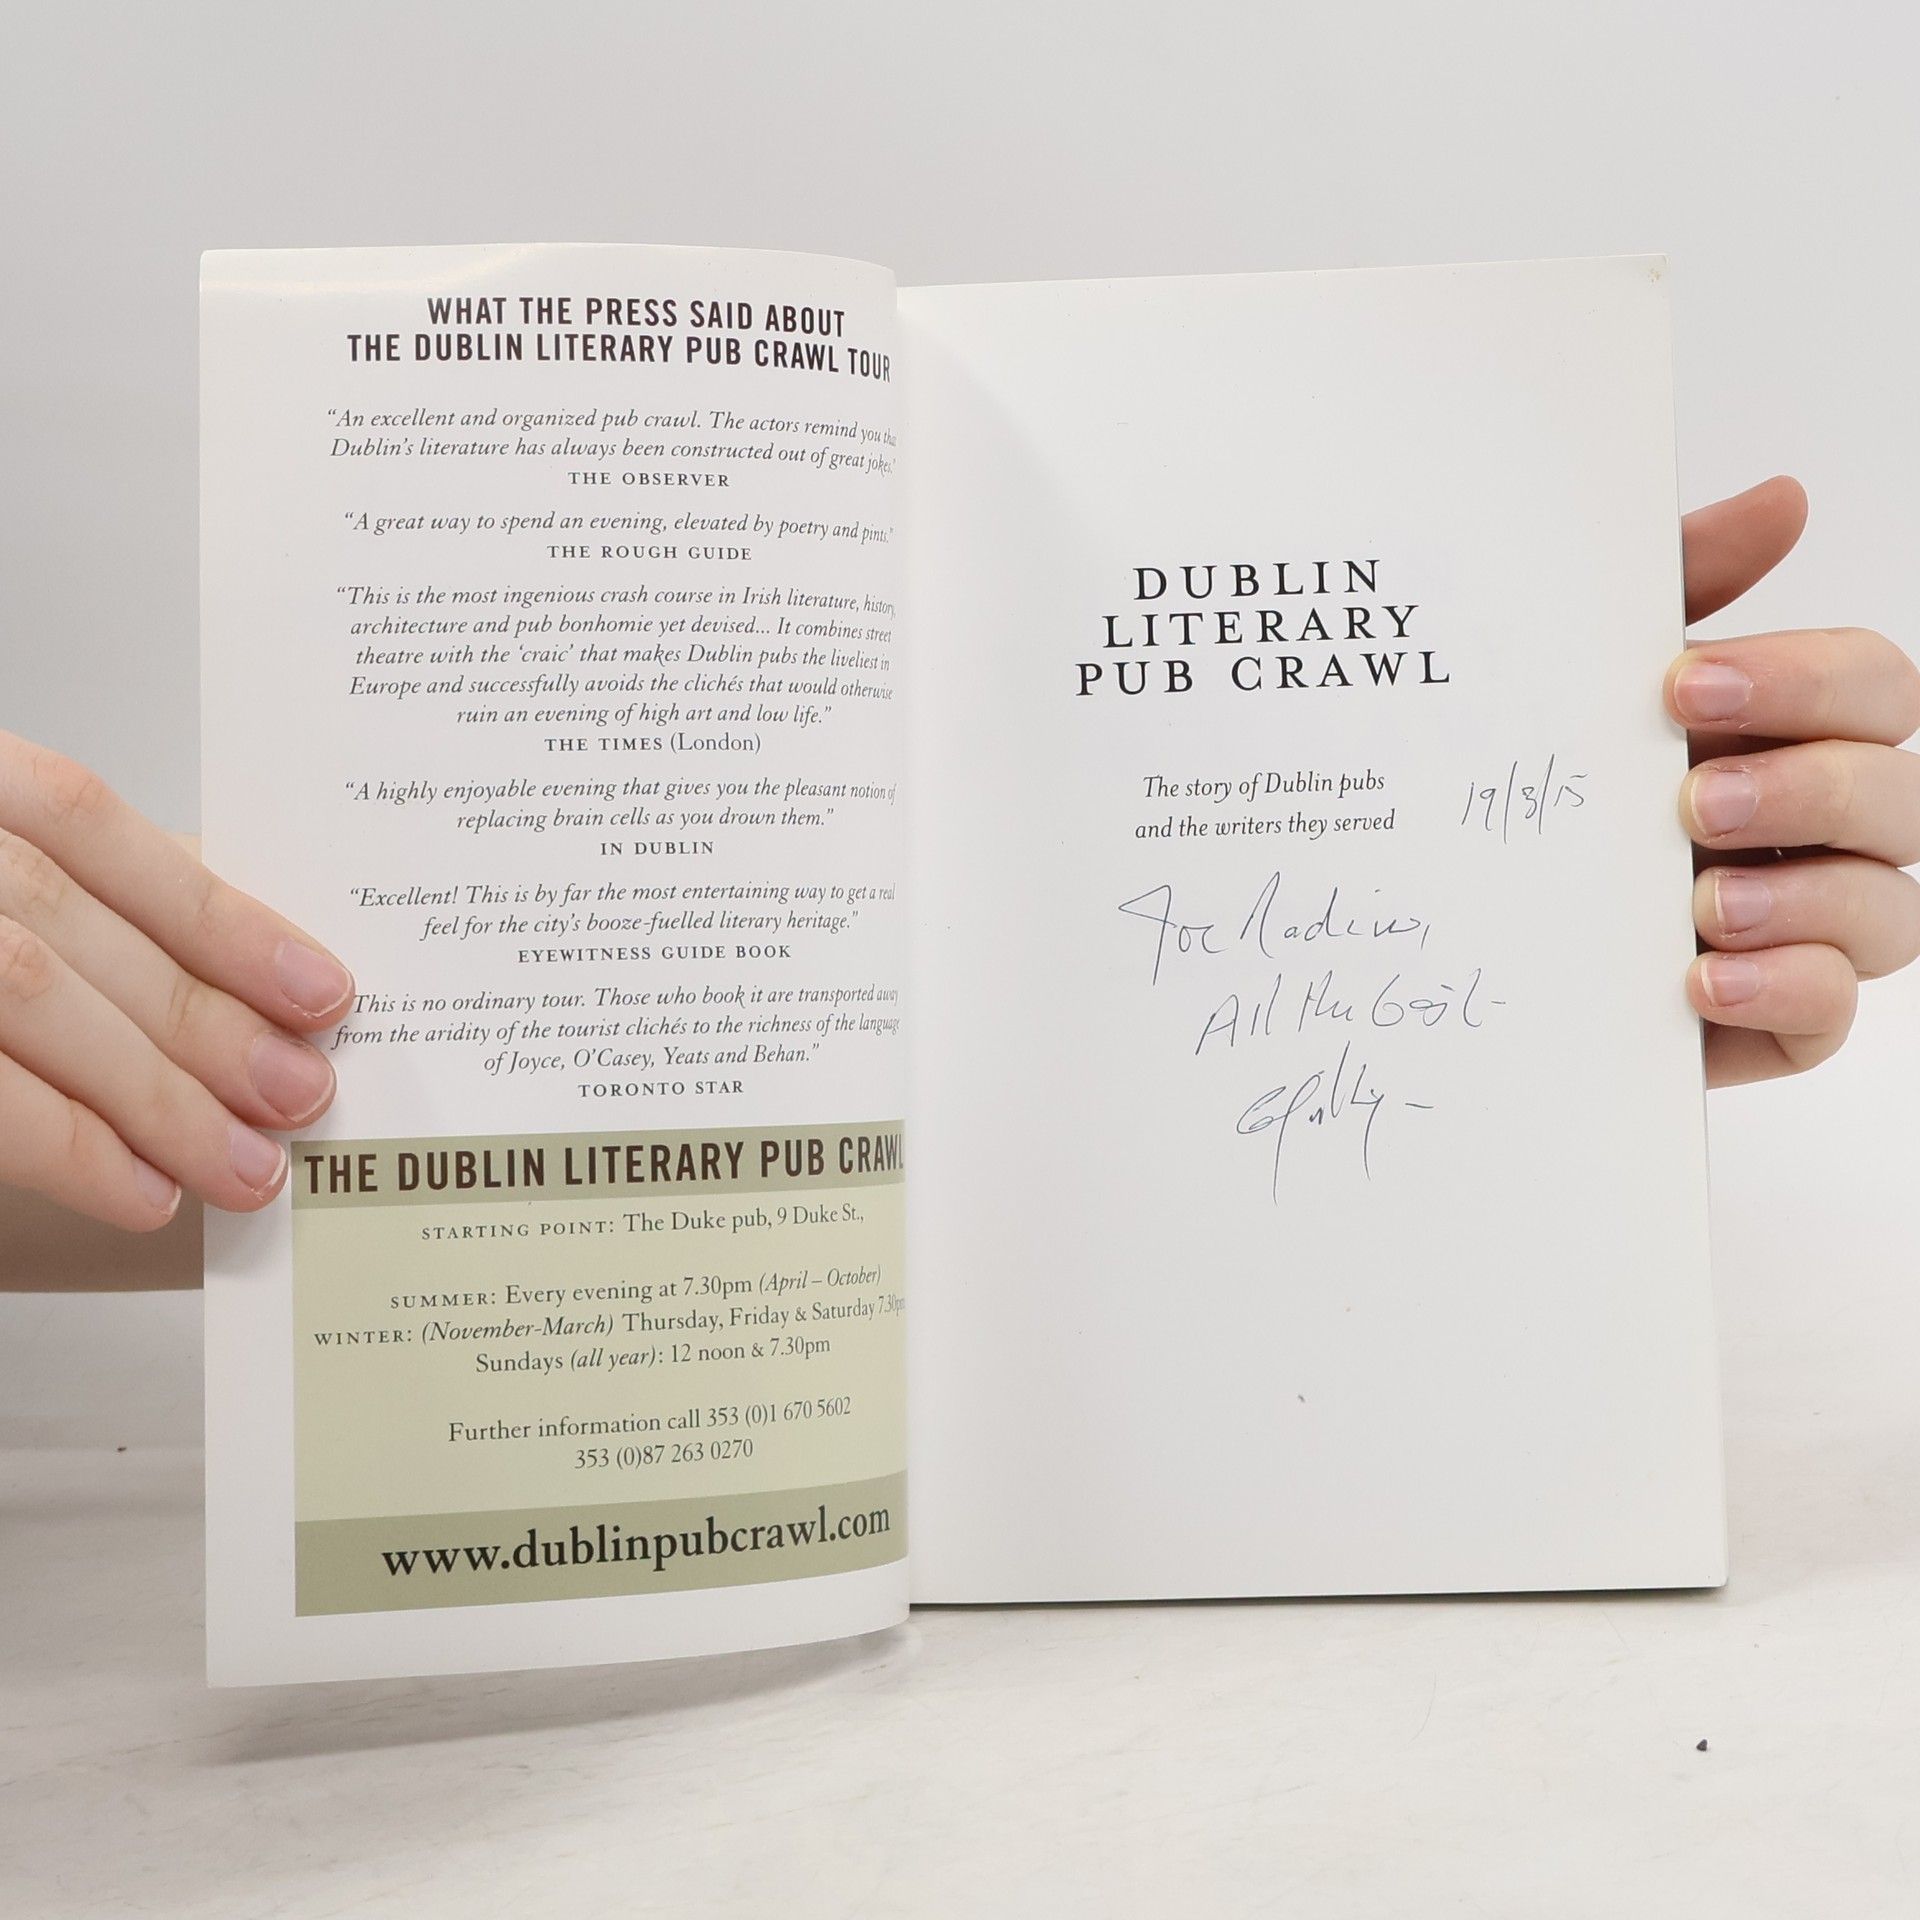 WHAT THE PRESS SAID ABOUT
THE DUBLIN LITERARY PUB CRAWL TOUR
“An excellent and organized pub crawl. The actors remind you that
Dublin's literature has always been constructed out of great jokes.”
THE OBSERVER
“A great way to spend an evening, elevated by poetry and pints.”
THE ROUGH GUIDE
“This is the most ingenious crash course in Irish literature, history,
architecture and pub bonhomie yet devised... It combines street
theatre with the ‘craic’ that makes Dublin pubs the liveliest in
Europe and successfully avoids the clichés that would otherwise
ruin an evening of high art and low life.”
THE TIMES (London)
“A highly enjoyable evening that gives you the pleasant notion of
replacing brain cells as you drown them.”
IN DUBLIN
“Excellent! This is by far the most entertaining way to get a real
feel for the city's booze-fuelled literary heritage.”
EYEWITNESS GUIDE BOOK
This is no ordinary tour. Those who book it are transported away
from the aridity of the tourist clichés to the richness of the language
of Joyce, O'Casey, Yeats and Behan.”
TORONTO STAR
THE DUBLIN LITERARY PUB CRAWL
STARTING POINT: The Duke pub, 9 Duke St.,
SUMMER: Every evening at 7.30pm (April – October)
WINTER: (November-March) Thursday, Friday & Saturday 7.30pm
Sundays (all year): 12 noon & 7.30pm
Further information call 353 (0)1 670 5602
353 (0)87 263 0270
www.dublinpubcrawl.com
DUBLIN
LITERARY
PUB CRAWL
The story of Dublin pubs
and the writers they served
19/3/15
All the best